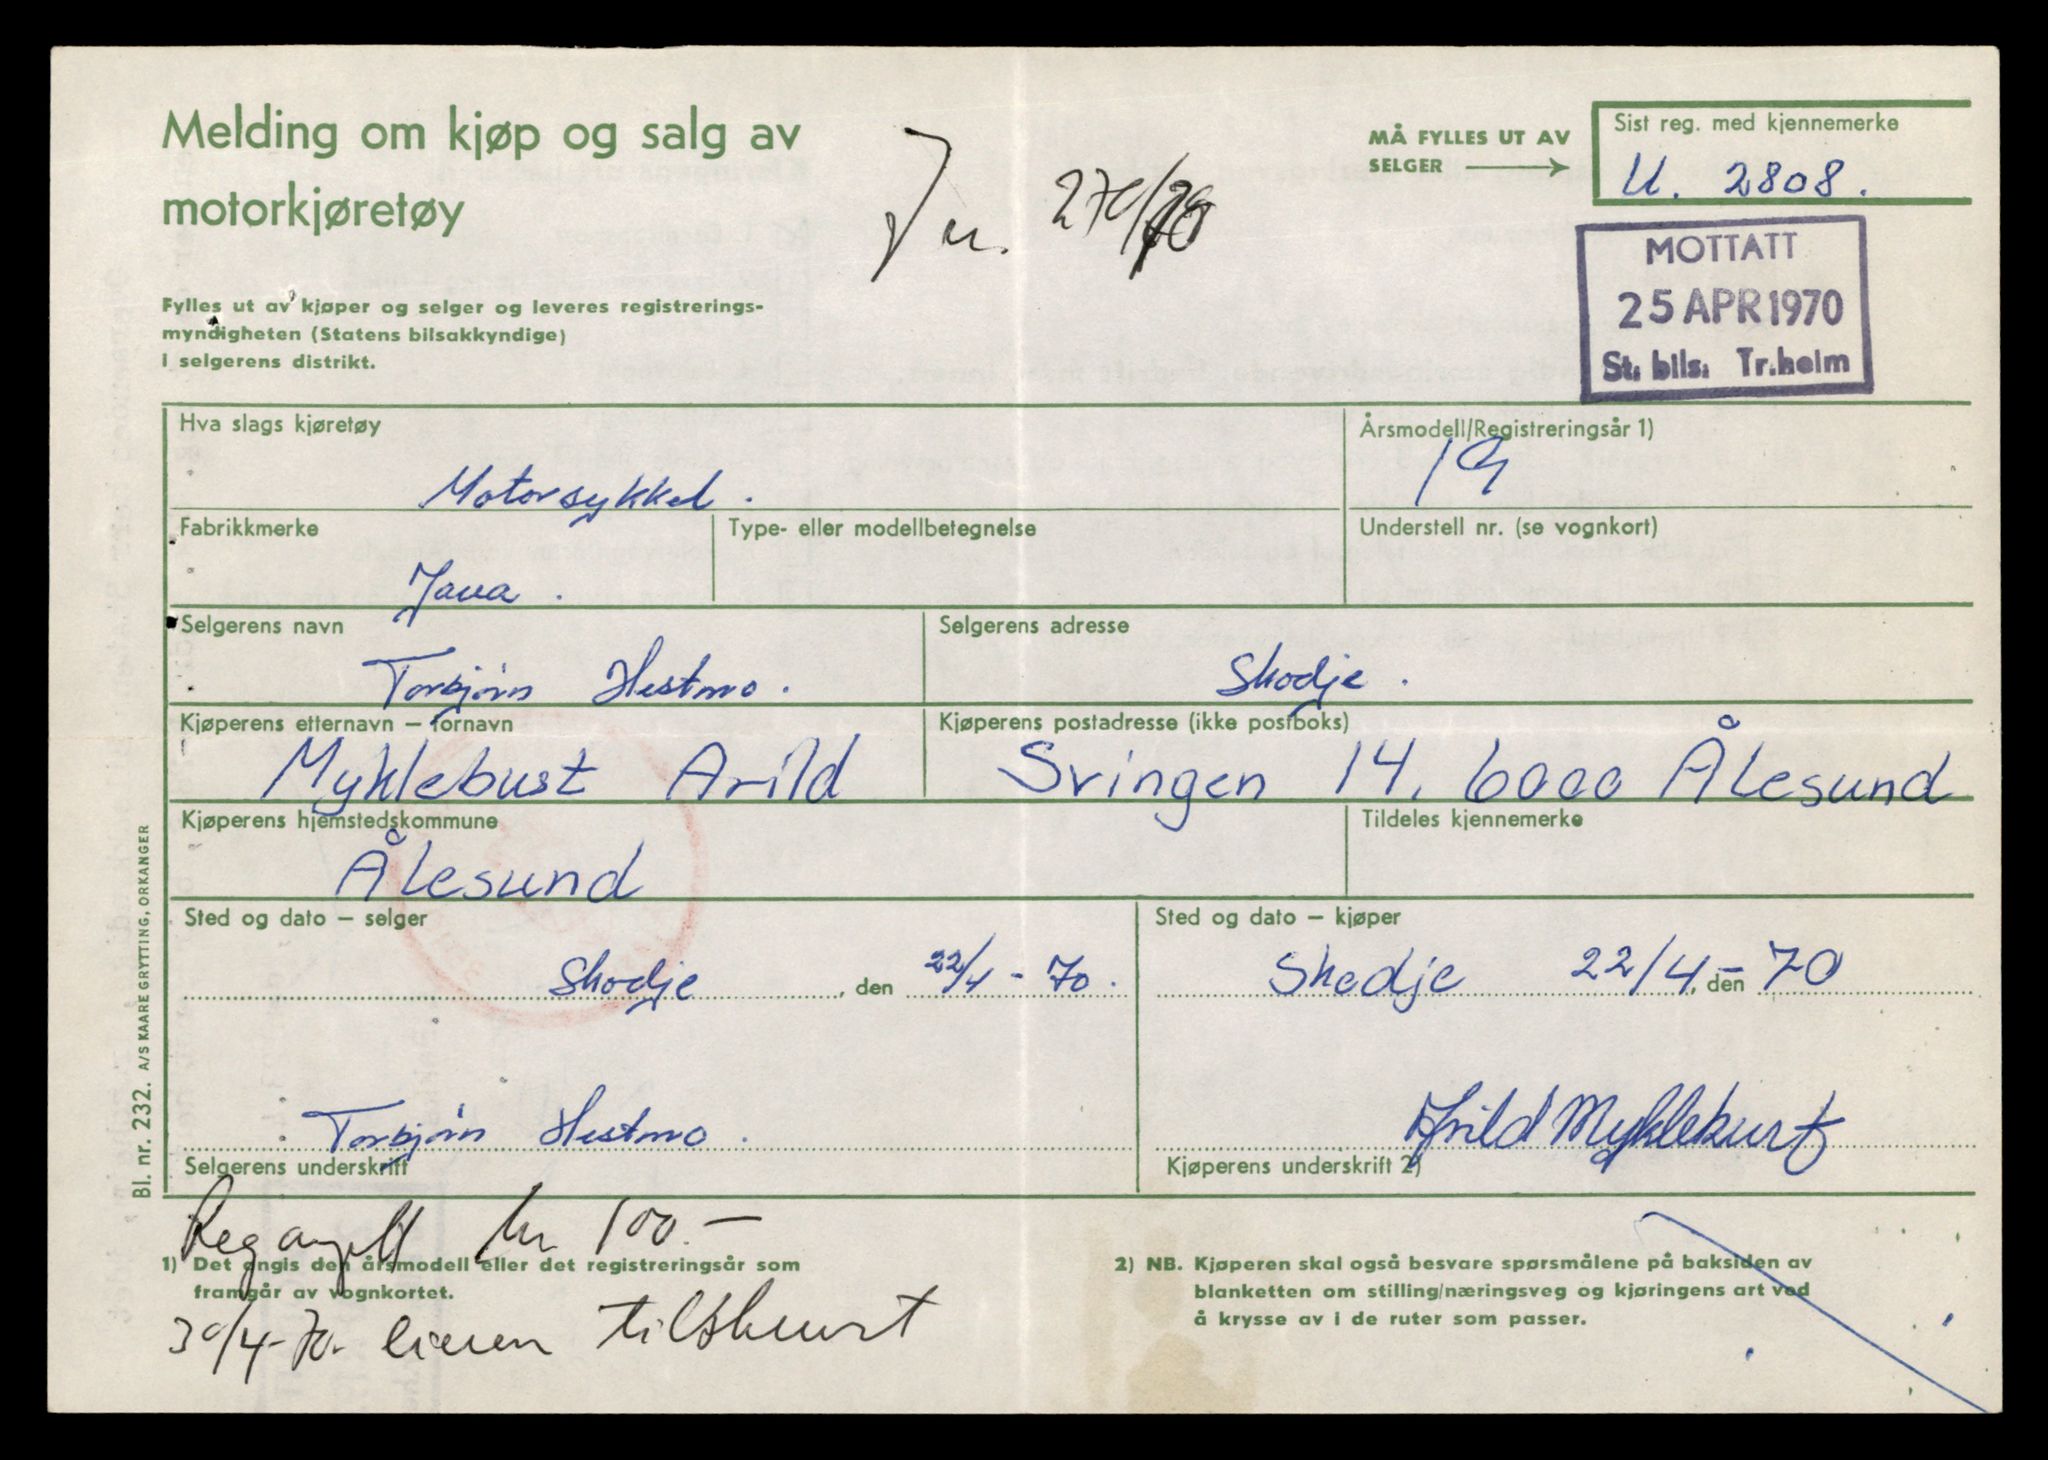 Melding om kjøp og salg av
motorkjøretøy
MÅ FYLLES UT AV
SELGER
Sist reg. med kjennemerke
U. 2808.
MOTTATT
25 APR 1970
St. bils. Tr.heim
Fylles ut av kjøper og selger og leveres registrerings-
myndigheten (Statens bilsakkyndige)
i selgerens distrikt.
Hva slags kjøretøy
Motorsykkel.
Årsmodell/Registreringsår 1)
19
Fabrikkmerke
Jawa.
Type- eller modellbetegnelse
Understell nr. (se vognkort)
Selgerens navn
Torbjørn Hestmo.
Selgerens adresse
Skodje.
Kjøperens etternavn — fornavn
Myklebust Arild
Kjøperens postadresse (ikke postboks)
Svingen 14, 6000 Ålesund
Kjøperens hjemstedskommune
Ålesund
Tildeles kjennemerke
Sted og dato — selger
Skodje, den 22/4 - 70.
Sted og dato — kjøper
Skodje 22/4, den - 70
Torbjørn Hestmo.
Selgerens underskrift
Arild Myklebust
Kjøperens underskrift 2)
kr 100.-
1) Det angis den årsmodell eller det registreringsår som
framgår av vognkortet.
30/4-70.
2) NB. Kjøperen skal også besvare spørsmålene på baksiden av
blanketten om stilling/næringsveg og kjøringens art ved
å krysse av i de ruter som passer.
Bl. nr. 232. A/S KAARE GRYTTING, ORKANGER